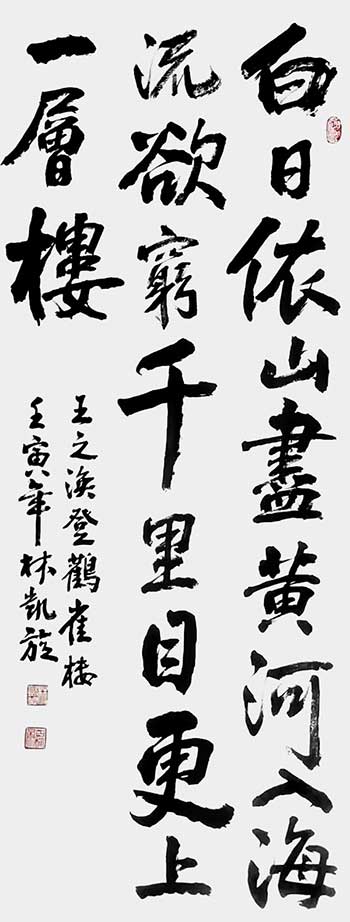 白日依山盡黄河入海
流欲窮千里目更上
一層樓
王之渙登鸛雀楼
壬寅年林凱旋